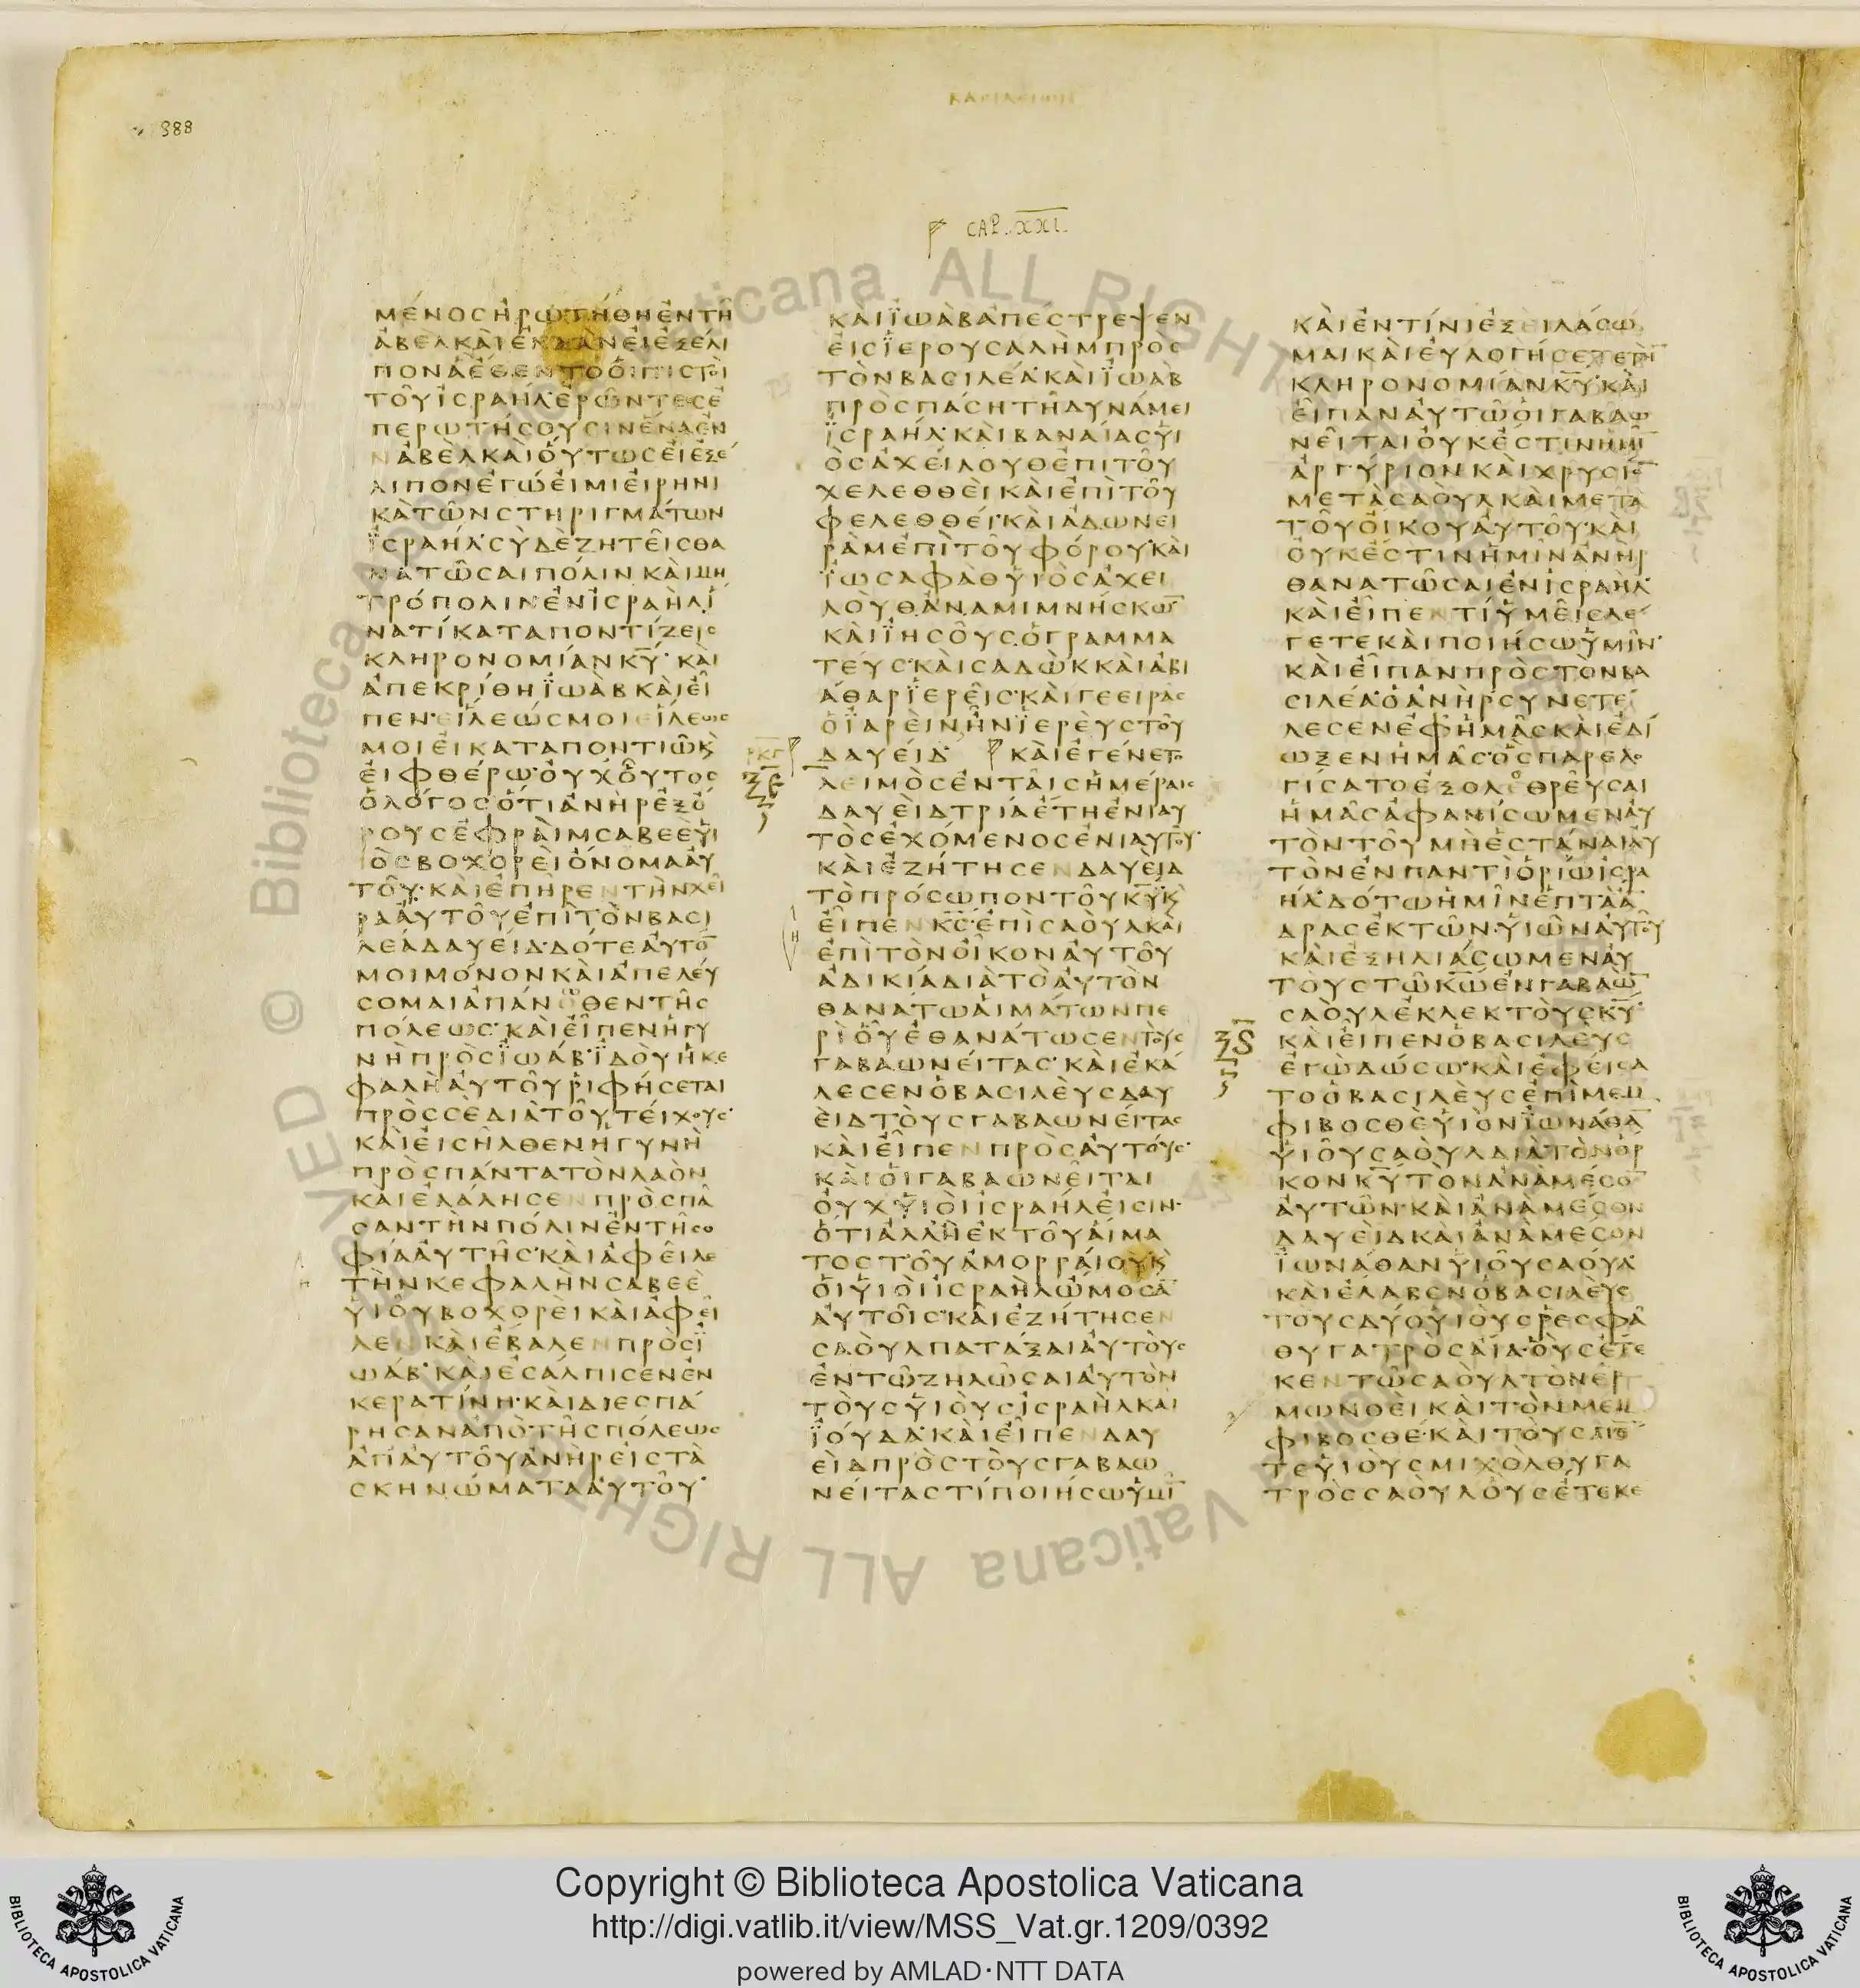 388
ΒΑΣΙΛΕΙΩΝ
CAP. XXI.
ΜΕΝΟΣΗΡΩΤΗΘΗΕΝΤΗ
ΑΒΕΛΚΑΙΕΝΔΑΝΕΙΕΞΕΛΙ
ΠΟΝΑΕΘΕΝΤΟΟΙΠΙΣΤΟΙ
ΤΟΥΙΣΡΑΗΛ·ΕΡΩΝΤΕΣΕ
ΠΕΡΩΤΗΣΟΥΣΙΝΕΝΑΕΝ
ΑΒΕΛΚΑΙΟΥΤΩΣΕΙΕΞΕ
ΛΙΠΟΝΕΓΩΕΙΜΙΕΙΡΗΝΙ
ΚΑΤΩΝΣΤΗΡΙΓΜΑΤΩΝ
ΙΣΡΑΗΛ·ΣΥΔΕΖΗΤΕΙΣΘΑ
ΝΑΤΩΣΑΙΠΟΛΙΝΚΑΙΜΗ
ΤΡΟΠΟΛΙΝΕΝΙΣΡΑΗΛΙ
ΝΑΤΙΚΑΤΑΠΟΝΤΙΖΕΙΣ
ΚΛΗΡΟΝΟΜΙΑΝΚΥ·ΚΑΙ
ΑΠΕΚΡΙΘΗΪΩΑΒΚΑΙΕΙ
ΠΕΝ·ΕΙΛΕΩΣΜΟΙΕΙΛΕΩΣ
ΜΟΙΕΙΚΑΤΑΠΟΝΤΙΩΚ
ΕΙΦΘΕΡΩ·ΟΥΧΟΥΤΟΣ
ΟΛΟΓΟΣΟΤΙΑΝΗΡΕΞΟ
ΡΟΥΣΕΦΡΑΙΜΣΑΒΕΕΥΙ
ΟΣΒΟΧΟΡΕΙΟΝΟΜΑΑΥ
ΤΟΥ·ΚΑΙΕΠΗΡΕΝΤΗΝΧΕΙ
ΡΑΑΥΤΟΥΕΠΙΤΟΝΒΑΣΙ
ΛΕΑΔΑΥΕΙΔ·ΔΟΤΕΑΥΤΟ
ΜΟΙΜΟΝΟΝΚΑΙΑΠΕΛΕΥ
ΣΟΜΑΙΑΠΑΝΩΘΕΝΤΗΣ
ΠΟΛΕΩΣ·ΚΑΙΕΙΠΕΝΗΓΥ
ΝΗΠΡΟΣΪΩΑΒ·ΪΔΟΥΗΚΕ
ΦΑΛΗΑΥΤΟΥΡΙΦΗΣΕΤΑΙ
ΠΡΟΣΣΕΔΙΑΤΟΥΤΕΙΧΟΥΣ·
ΚΑΙΕΙΣΗΛΘΕΝΗΓΥΝΗ
ΠΡΟΣΠΑΝΤΑΤΟΝΛΑΟΝ
ΚΑΙΕΛΑΛΗΣΕΝΠΡΟΣΠΑ
ΣΑΝΤΗΝΠΟΛΙΝΕΝΤΗΣΟ
ΦΙΑΑΥΤΗΣ·ΚΑΙΑΦΕΙΛΕ
ΤΗΝΚΕΦΑΛΗΝΣΑΒΕΕ
ΥΙΟΥΒΟΧΟΡΕΙΚΑΙΑΦΕΙ
ΛΕΝΚΑΙΕΒΑΛΕΝΠΡΟΣΪ
ΩΑΒ·ΚΑΙΕΣΑΛΠΙΣΕΝΕΝ
ΚΕΡΑΤΙΝΗ·ΚΑΙΔΙΕΣΠΑ
ΡΗΣΑΝΑΠΟΤΗΣΠΟΛΕΩΣ
ΑΠΑΥΤΟΥΑΝΗΡΕΙΣΤΑ
ΣΚΗΝΩΜΑΤΑΑΥΤΟΥ·
ΚΑΙΪΩΑΒΑΠΕΣΤΡΕΨΕΝ
ΕΙΣΪΕΡΟΥΣΑΛΗΜΠΡΟΣ
ΤΟΝΒΑΣΙΛΕΑ·ΚΑΙΪΩΑΒ
ΠΡΟΣΠΑΣΗΤΗΔΥΝΑΜΕΙ
ΪΣΡΑΗΛ·ΚΑΙΒΑΝΑΙΑΣΥΙ
ΟΣΑΧΕΙΛΟΥΘΕΠΙΤΟΥ
ΧΕΛΕΘΘΕΙΚΑΙΕΠΙΤΟΥ
ΦΕΛΕΘΘΕΙ·ΚΑΙΑΔΩΝΕΙ
ΡΑΜΕΠΙΤΟΥΦΟΡΟΥ·ΚΑΙ
ΪΩΣΑΦΑΘΥΙΟΣΑΧΕΙ
ΛΟΥΘΑΝΑΜΙΜΝΗΣΚΩ
ΚΑΙΪΗΣΟΥΣΟΓΡΑΜΜΑ
ΤΕΥΣ·ΚΑΙΣΑΔΩΚΚΑΙΑΒΙ
ΑΘΑΡΪΕΡΕΙΣ·ΚΑΙΓΕΕΙΡΑΣ
ΟΪΑΡΕΙΝΗΝΪΕΡΕΥΣΤΟΥ
ΔΑΥΕΙΔ ΚΑΙΕΓΕΝΕΤΟ
ΛΕΙΜΟΣΕΝΤΑΙΣΗΜΕΡΑΙΣ
ΔΑΥΕΙΔΤΡΙΑΕΤΗΕΝΙΑΥ
ΤΟΣΕΧΟΜΕΝΟΣΕΝΙΑΥΤΟΥ·
ΚΑΙΕΖΗΤΗΣΕΝΔΑΥΕΙΔ
ΤΟΠΡΟΣΩΠΟΝΤΟΥΚΥΚ
ΕΙΠΕΝΚΣ·ΕΠΙΣΑΟΥΛΚΑΙ
ΕΠΙΤΟΝΟΙΚΟΝΑΥΤΟΥ
ΑΔΙΚΙΑΔΙΑΤΟΑΥΤΟΝ
ΘΑΝΑΤΩΑΙΜΑΤΩΝΠΕ
ΡΙΟΥΕΘΑΝΑΤΩΣΕΝΤΟΥΣ
ΓΑΒΑΩΝΕΙΤΑΣ·ΚΑΙΕΚΑ
ΛΕΣΕΝΟΒΑΣΙΛΕΥΣΔΑΥ
ΕΙΔΤΟΥΣΓΑΒΑΩΝΕΙΤΑΣ
ΚΑΙΕΙΠΕΝΠΡΟΣΑΥΤΟΥΣ·
ΚΑΙΟΙΓΑΒΑΩΝΕΙΤΑΙ
ΟΥΧΥΙΟΙΙΣΡΑΗΛΕΙΣΙΝ·
ΟΤΙΑΛΛΗΕΚΤΟΥΑΙΜΑ
ΤΟΣΤΟΥΑΜΟΡΡΑΙΟΥΚ
ΟΙΥΙΟΙΙΣΡΑΗΛΩΜΟΣΑ
ΑΥΤΟΙΣ·ΚΑΙΕΖΗΤΗΣΕΝ
ΣΑΟΥΛΠΑΤΑΞΑΙΑΥΤΟΥΣ
ΕΝΤΩΖΗΛΩΣΑΙΑΥΤΟΝ
ΤΟΥΣΥΙΟΥΣΙΣΡΑΗΛΚΑΙ
ΪΟΥΔΑ·ΚΑΙΕΙΠΕΝΔΑΥ
ΕΙΔΠΡΟΣΤΟΥΣΓΑΒΑΩ
ΝΕΙΤΑΣΤΙΠΟΙΗΣΩΥΜΙ
ΚΑΙΕΝΤΙΝΙΕΞΕΙΛΑΣΩ
ΜΑΙΚΑΙΕΥΛΟΓΗΣΕΤΕΤΗ
ΚΛΗΡΟΝΟΜΙΑΝΚΥ·ΚΑΙ
ΕΙΠΑΝΑΥΤΩΟΙΓΑΒΑΩ
ΝΕΙΤΑΙΟΥΚΕΣΤΙΝΗΜΙ
ΑΡΓΥΡΙΟΝΚΑΙΧΡΥΣΙΟ
ΜΕΤΑΣΑΟΥΛΚΑΙΜΕΤΑ
ΤΟΥΟΙΚΟΥΑΥΤΟΥ·ΚΑΙ
ΟΥΚΕΣΤΙΝΗΜΙΝΑΝΗΡ
ΘΑΝΑΤΩΣΑΙΕΝΙΣΡΑΗΛ·
ΚΑΙΕΙΠΕΝΤΙΥΜΕΙΣΛΕ
ΓΕΤΕΚΑΙΠΟΙΗΣΩΥΜΙΝ·
ΚΑΙΕΙΠΑΝΠΡΟΣΤΟΝΒΑ
ΣΙΛΕΑ·ΟΑΝΗΡΣΥΝΕΤΕ
ΛΕΣΕΝΕΦΗΜΑΣΚΑΙΕΔΙ
ΩΞΕΝΗΜΑΣ·ΟΣΠΑΡΕΛΟ
ΓΙΣΑΤΟΕΞΟΛΕΘΡΕΥΣΑΙ
ΗΜΑΣΑΦΑΝΙΣΩΜΕΝΑΥ
ΤΟΝΤΟΥΜΗΕΣΤΑΝΑΙΑΥ
ΤΟΝΕΝΠΑΝΤΙΟΡΙΩΙΣΡΑ
ΗΛ·ΔΟΤΩΗΜΙΝΕΠΤΑΑ
ΔΡΑΣΕΚΤΩΝΥΙΩΝΑΥΤΟΥ
ΚΑΙΕΞΗΛΙΑΣΩΜΕΝΑΥ
ΤΟΥΣΤΩΚΩΕΝΓΑΒΑΩ
ΣΑΟΥΛΕΚΛΕΚΤΟΥΣΚΥ·
ΚΑΙΕΙΠΕΝΟΒΑΣΙΛΕΥΣ
ΕΓΩΔΩΣΩ·ΚΑΙΕΦΕΙΣΑ
ΤΟΟΒΑΣΙΛΕΥΣΕΠΙΜΕΜ
ΦΙΒΟΣΘΕΥΙΟΝΪΩΝΑΘΑ
ΥΙΟΥΣΑΟΥΛΔΙΑΤΟΝΟΡ
ΚΟΝΚΥΤΟΝΑΝΑΜΕΣΟ
ΑΥΤΩΝ·ΚΑΙΑΝΑΜΕΣΟΝ
ΔΑΥΕΙΔΚΑΙΑΝΑΜΕΣΟΝ
ΪΩΝΑΘΑΝΥΙΟΥΣΑΟΥΛ·
ΚΑΙΕΛΑΒΕΝΟΒΑΣΙΛΕΥΣ
ΤΟΥΣΔΥΟΥΙΟΥΣΡΕΣΦΑ
ΘΥΓΑΤΡΟΣΑΙΑ·ΟΥΣΕΤΕ
ΚΕΝΤΩΣΑΟΥΛΤΟΝΕΡ
ΜΩΝΟΕΙΚΑΙΤΟΝΜΕΜ
ΦΙΒΟΣΘΕ·ΚΑΙΤΟΥΣ
ΤΕΥΙΟΥΣΜΙΧΟΛΘΥΓΑ
ΤΡΟΣΣΑΟΥΛΟΥΣΕΤΕΚΕ
Copyright © Biblioteca Apostolica Vaticana
http://digi.vatlib.it/view/MSS_Vat.gr.1209/0392
powered by AMLAD·NTT DATA
BIBLIOTECA APOSTOLICA VATICANA
BIBLIOTECA APOSTOLICA VATICANA